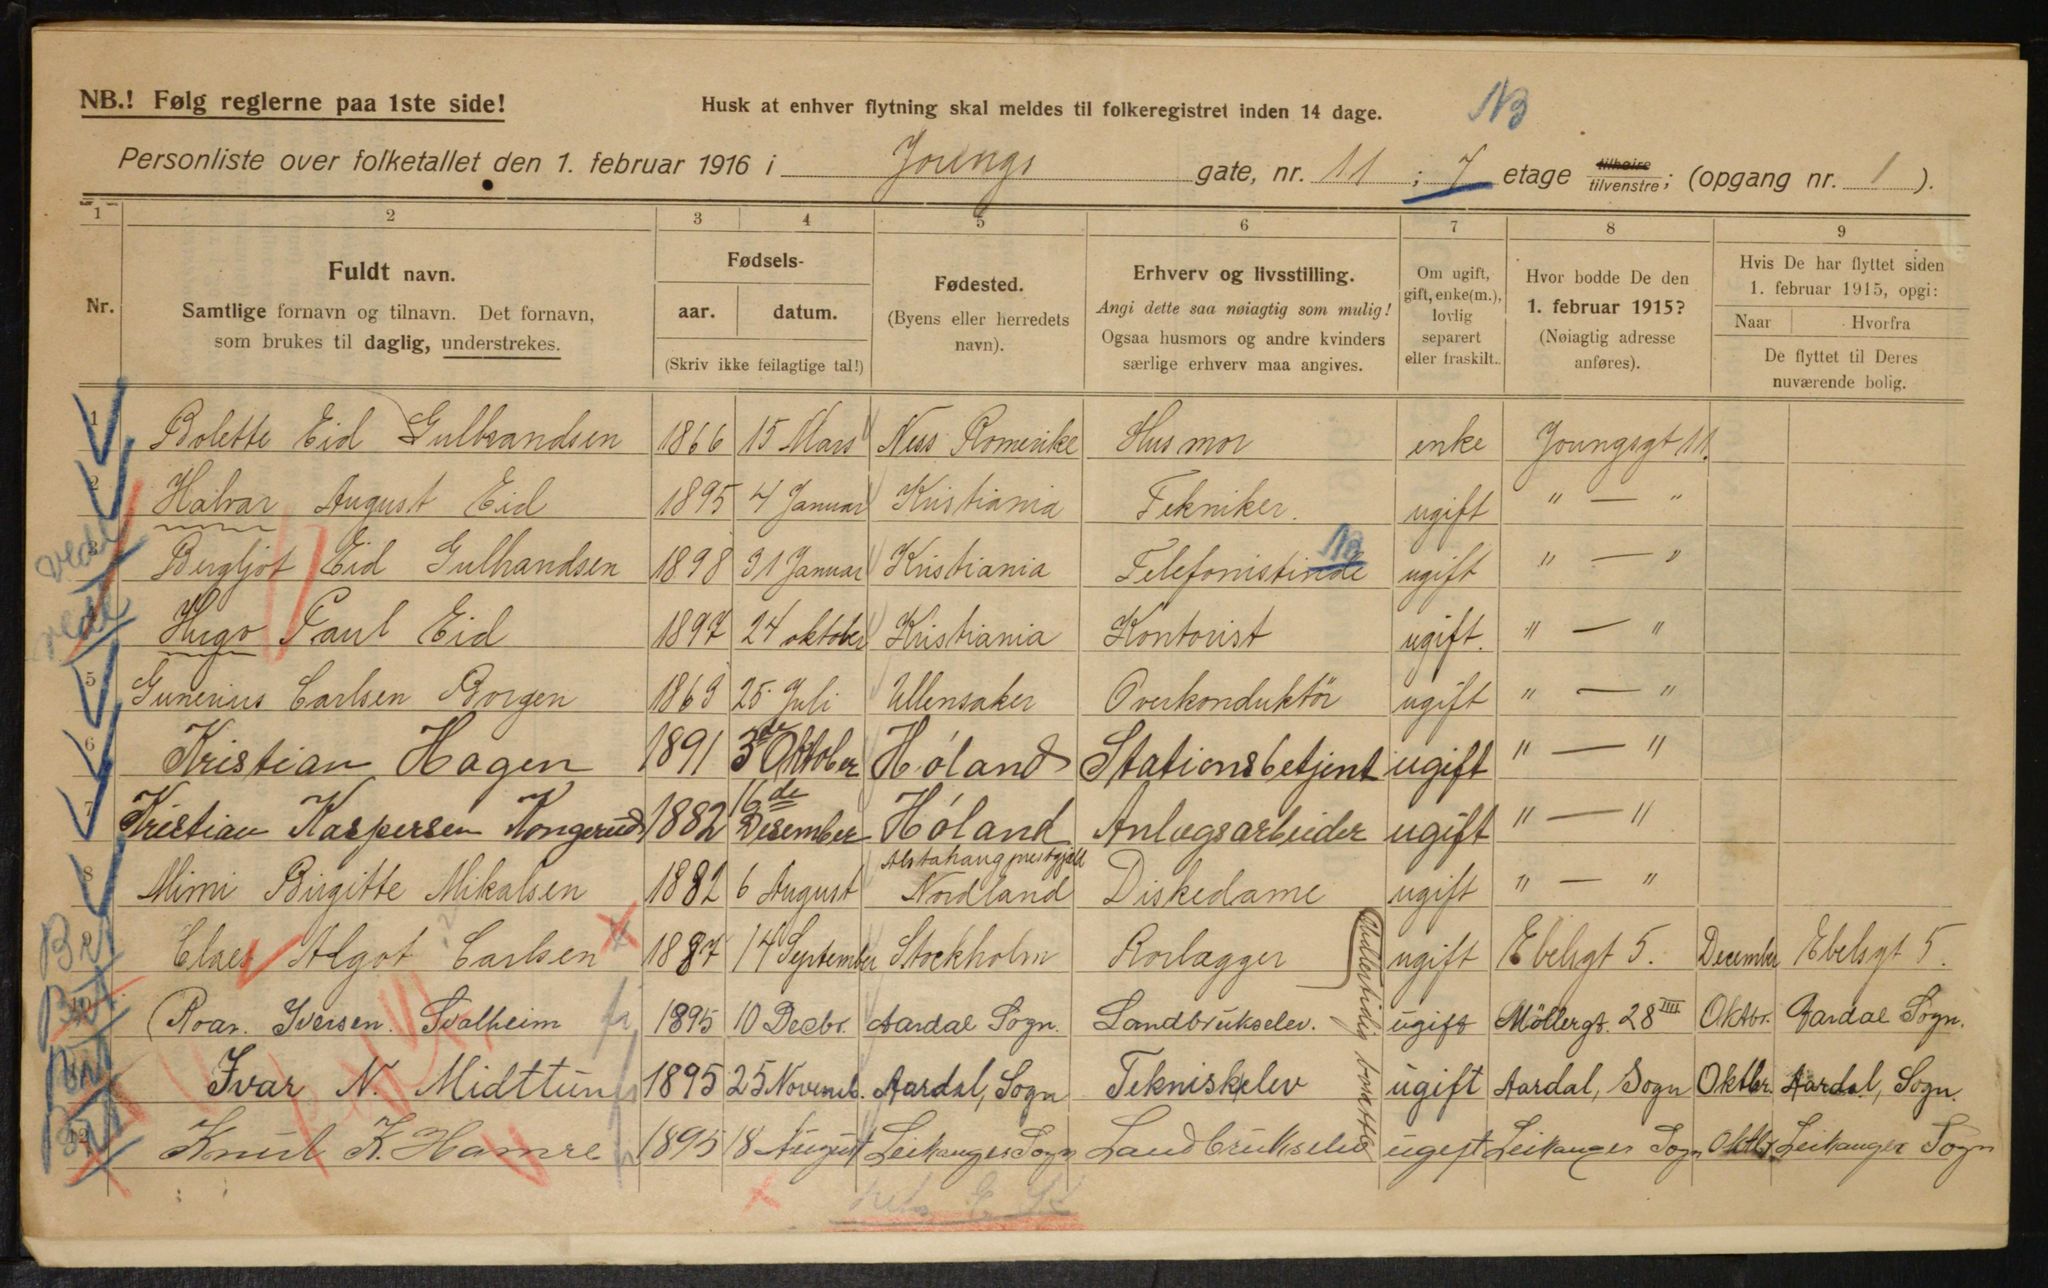 NB.! Følg reglerne paa 1ste side!
Husk at enhver flytning skal meldes til folkeregistret inden 14 dage.
NB
Personliste over folketallet den 1. februar 1916 i Youngs gate, nr. 11 ; 7 etage tilhøire tilvenstre; (opgang nr. 1 ).
1 2 3 4 5 6 7 8 9
Nr.
Fuldt navn.
Samtlige fornavn og tilnavn. Det fornavn,
som brukes til daglig, understrekes.
Fødsels-
aar. datum.
(Skriv ikke feilagtige tal!)
Fødested.
(Byens eller herredets
navn).
Erhverv og livsstilling.
Angi dette saa nøiagtig som mulig!
Ogsaa husmors og andre kvinders
særlige erhverv maa angives.
Om ugift,
gift, enke(m.),
lovlig
separert
eller fraskilt.
Hvor bodde De den
1. februar 1915?
(Nøiagtig adresse
anføres).
Hvis De har flyttet siden
1. februar 1915, opgi:
Naar Hvorfra
De flyttet til Deres
nuværende bolig.
1 Bolette Eid Gulbrandsen 1866 15 Mars Ness Romerike Husmor enke Youngsgt 11.
2 Halvar August Eid 1895 4 Januar Kristiania Tekniker. ugift " — "
3 Bergljot Eid Gulbrandsen 1898 31 Januar Kristiania Telefonistinde ugift " — "
4 Hugo Paul Eid 1897 24 oktober Kristiania Kontorist ugift. " — "
5 Gunerius Carlsen Borgen 1869 25. Juli Ullensaker Overkonduktör ugift " — "
6 Kristian Hagen 1891 3de Oktober Höland Stationsbetjent ugift " — "
7 Kristian Kaspersen Kongerud 1882 16de Desember Höland Anlægsarbeider ugift " — "
8 Mimi Birgitte Mikalsen 1882 6 August Alstahaug prestgjeld Nordland Diskedame ugift " — "
9 Claes Algot Carlsen 1887 14 September Stockholm Rorlægger ugift Ebelsgt 5. December Ebelsgt 5.
10 Roar. Iversen. Svalheim 1895 10 Decbr. Aardal Sogn. Landbrukselev. ugift Möllergt. 28 III Oktbr. Aardal Sogn.
11 Ivar N. Midttun 1895 25 Novemb. Aardal, Sogn Tekniskelev ugift Aardal, Sogn Oktbr. Aardal, Sogn.
12 Knut K. Hamre 1895 18 August Leikanger Sogn Landbrukselev ugift Leikanger Sogn Oktbr Leikanger Sogn
Midlertidig bosatte